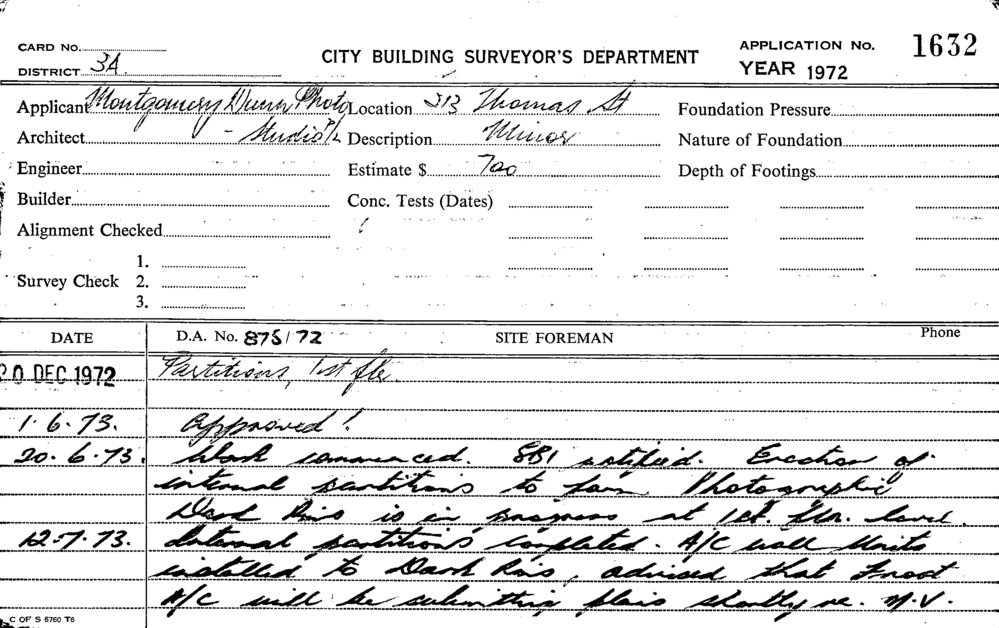 CARD NO.
DISTRICT 3A
CITY BUILDING SURVEYOR'S DEPARTMENT
APPLICATION No. 1632
YEAR 1972
Applicant Montgomery Dunn Photo
Architect - Studio P/L
Engineer
Builder
Alignment Checked
Survey Check
1.
2.
3.
Location 313 Thomas St
Description Minor
Estimate $ 700
Conc. Tests (Dates)
Foundation Pressure
Nature of Foundation
Depth of Footings
DATE
D.A. No. 875/72
SITE FOREMAN
Phone
20 DEC 1972 Partitions, 1st flr.
1.6.73. Approved!
20.6.73. Work commenced. SBI notified. Erection of
internal partitions to form Photographic
Dark Rms is in progress at 1st. flr. level.
12.7.73. Internal partitions completed. A/C wall Units
installed to Dark Rms, advised that
A/C will be submitting plans shortly re. M.V.
C OF S 5760 T6